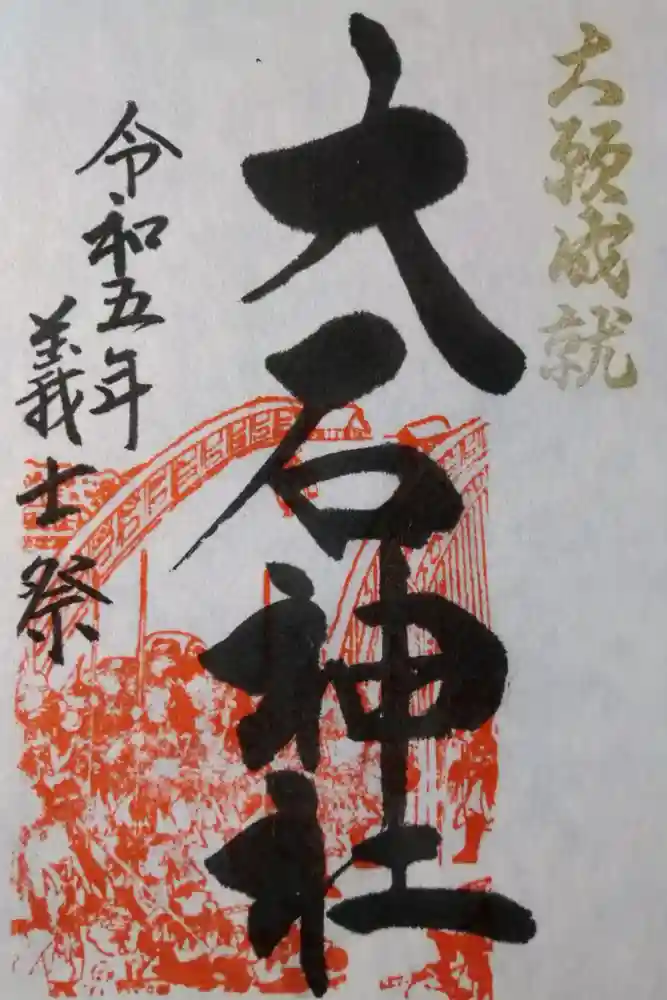 大願成就
大石神社
令和五年
義士祭